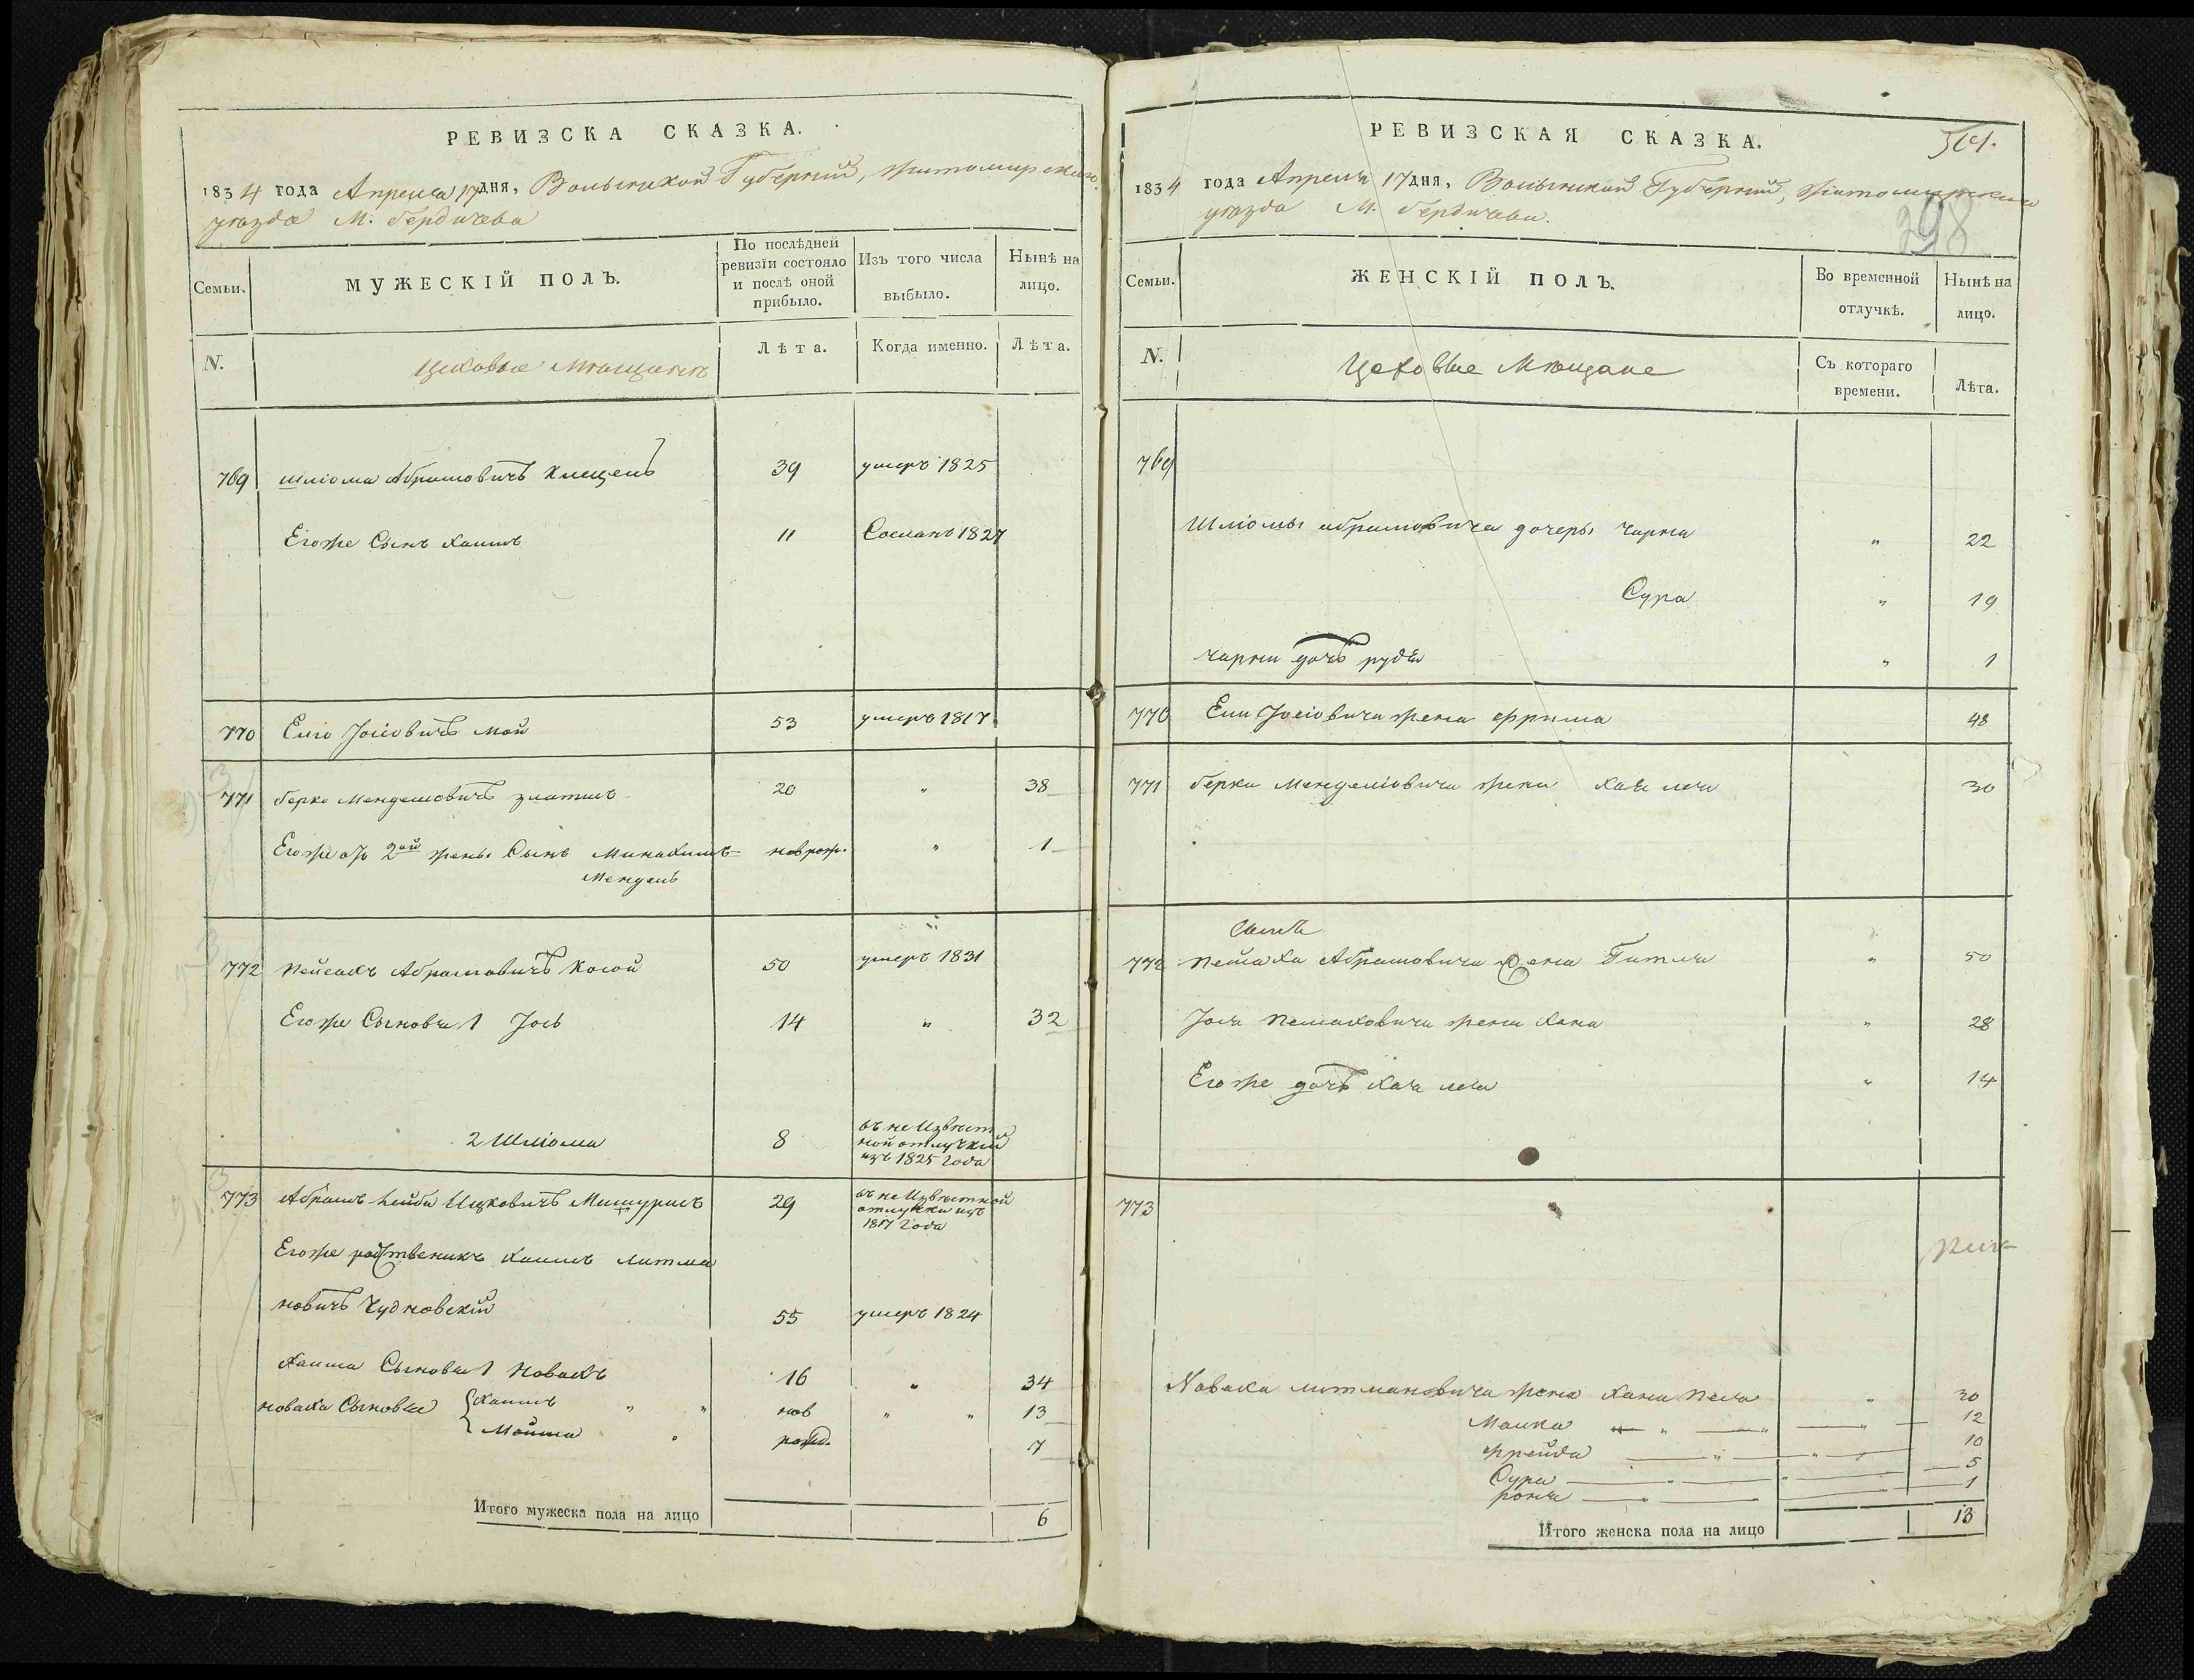 РЕВИЗСКА СКАЗКА.
1834 года Апреля 17 дня, Волынской Губернии, Житомирскаго
уезда М. Бердичева
Семьи.
МУЖЕСКІЙ ПОЛЪ.
По послѣдней ревизіи состояло и послѣ оной прибыло.
Изъ того числа выбыло.
Нынѣ на лицо.
N.
Цеховые Мещане
Лѣта.
Когда именно.
Лѣта.
769 Шліома Абрамовичъ Клещель 39 умеръ 1825
Егоже Сынъ Хаимъ 11 Сосланъ 1827
770 Еліо Іосіовичъ Мой 53 умеръ 1817
771 Берко Менделіовичъ 20 " 38
Егоже отъ 2ой жены Сынъ Минахимъ= новрож. " 1
Мендель
772 Пейсахъ Абрамовичъ Косой 50 умеръ 1831
Егоже Сыновья 1 Іось 14 " 32
2 Шліома 8 въ не Извѣст
ной отлучки
изъ 1825 Года
773 Абрамъ Лейба Ицковичъ 29 въ не Извѣстной
отлучки изъ
1817 Года
Егоже родственикъ Хаимъ Литма
новичъ Чудновскій 55 умеръ 1824
Хаима Сыновья 1 Новахъ 16 " 34
Новаха Сыновья { Хаимъ " " нов " " 13
Мошка " рожд. 7
Итого мужеска пола на лицо 6
РЕВИЗСКАЯ СКАЗКА.
1834 года Апреля 17 дня, Волынской Губернии, Житомирскаго
уезда М. Бердичева.
298
Семьи.
ЖЕНСКІЙ ПОЛЪ.
Во временной отлучкѣ.
Нынѣ на лицо.
N.
Цеховые Мещане
Съ котораго времени.
Лѣта.
769
Шліомы Абрамовича дочеры Чарна " 22
Сура " 19
Чарни дочь Рудя " 1
770 Ели Іосіовича жена Фрима 48
771 Берка Менделіовича жена Хая Леа 30
772 Пейсаха Абрамовича жена Гитля " 50
Іося Пейсаховича жена Хана " 28
Егоже дочь Хая Леа " 14
773
Новаха Литмановича жена Хана Песа " 30
Малка " " " 12
Фрейда " " " 10
Сура " " 5
" " 1
Итого женска пола на лицо 13